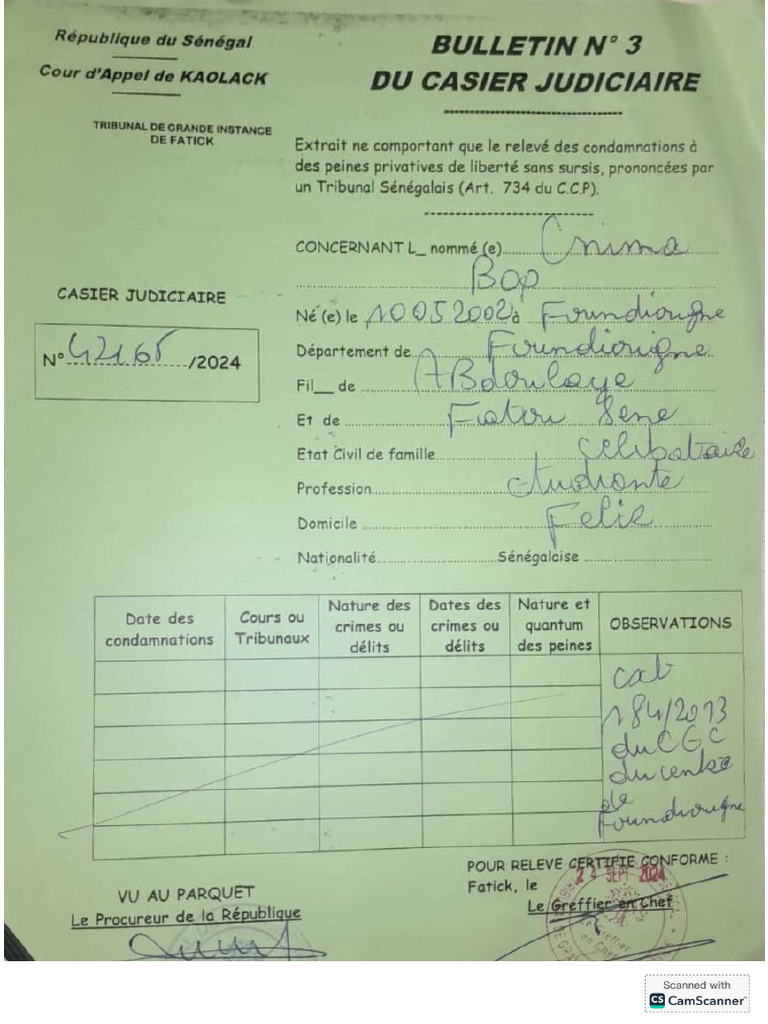 République du Sénégal
Cour d'Appel de KAOLACK
TRIBUNAL DE GRANDE INSTANCE
DE FATICK
BULLETIN N° 3
DU CASIER JUDICIAIRE
Extrait ne comportant que le relevé des condamnations à
des peines privatives de liberté sans sursis, prononcées par
un Tribunal Sénégalais (Art. 734 du C.C.P).
CONCERNANT L_ nommé (e)
Bop
CASIER JUDICIAIRE
N° 42165 /2024
Né (e) le 10 05 2002 à Foundiougne
Département de Foundiougne
Fil__ de Abdoulaye
Et de Fatou Sene
Etat Civil de famille célibataire
Profession étudiante
Domicile
Nationalité Sénégalaise
Date des condamnations
Cours ou Tribunaux
Nature des crimes ou délits
Dates des crimes ou délits
Nature et quantum des peines
OBSERVATIONS
184/2013
du CGC
du centre
de
Foundiougne
POUR RELEVE CERTIFIE CONFORME :
Fatick, le 24 SEPT 2024
Le Greffier en Chef
VU AU PARQUET
Le Procureur de la République
Scanned with
CS CamScanner